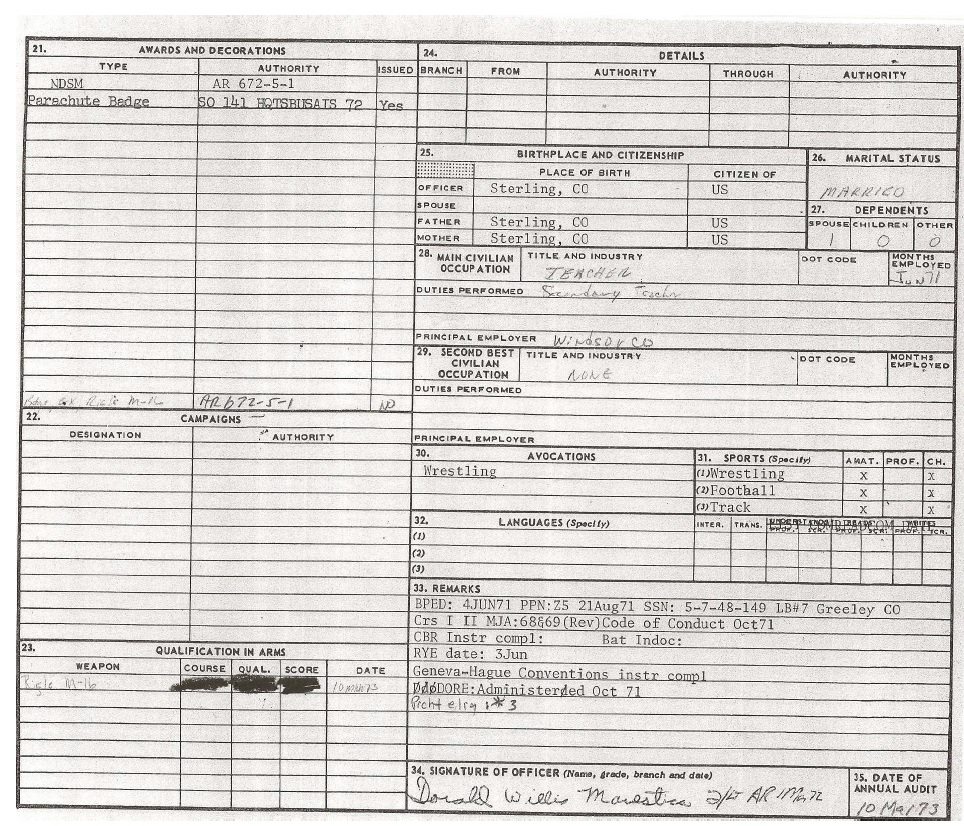 21. AWARDS AND DECORATIONS
TYPE AUTHORITY ISSUED
NDSM AR 672-5-1
Parachute Badge SO 141 HQTSBUSAIS 72 Yes
Rifle M-16 AR672-5-1 NO
22. CAMPAIGNS
DESIGNATION AUTHORITY
23. QUALIFICATION IN ARMS
WEAPON COURSE QUAL. SCORE DATE
Rifle M-16 10 MAR 73
24. DETAILS
BRANCH FROM AUTHORITY THROUGH AUTHORITY
25. BIRTHPLACE AND CITIZENSHIP
PLACE OF BIRTH CITIZEN OF
OFFICER Sterling, CO US
SPOUSE
FATHER Sterling, CO US
MOTHER Sterling, CO US
26. MARITAL STATUS
MARRIED
27. DEPENDENTS
SPOUSE CHILDREN OTHER
1 0 0
28. MAIN CIVILIAN OCCUPATION TITLE AND INDUSTRY DOT CODE MONTHS EMPLOYED
TEACHER Jun 71
DUTIES PERFORMED Secondary Teacher
PRINCIPAL EMPLOYER Windsor CO
29. SECOND BEST CIVILIAN OCCUPATION TITLE AND INDUSTRY DOT CODE MONTHS EMPLOYED
NONE
DUTIES PERFORMED
PRINCIPAL EMPLOYER
30. AVOCATIONS
Wrestling
31. SPORTS (Specify) AMAT. PROF. CH.
(1) Wrestling X X
(2) Football X X
(3) Track X X
32. LANGUAGES (Specify) INTER. TRANS.
(1)
(2)
(3)
33. REMARKS
BPED: 4JUN71 PPN:Z5 21Aug71 SSN: 5-7-48-149 LB#7 Greeley CO
Crs I II MJA:68&69(Rev)Code of Conduct Oct71
CBR Instr compl: Bat Indoc:
RYE date: 3Jun
Geneva-Hague Conventions instr compl
DORE:Administerded Oct 71
34. SIGNATURE OF OFFICER (Name, grade, branch and date)
Donald Willis 2/LT AR
35. DATE OF ANNUAL AUDIT
10 Mar 73